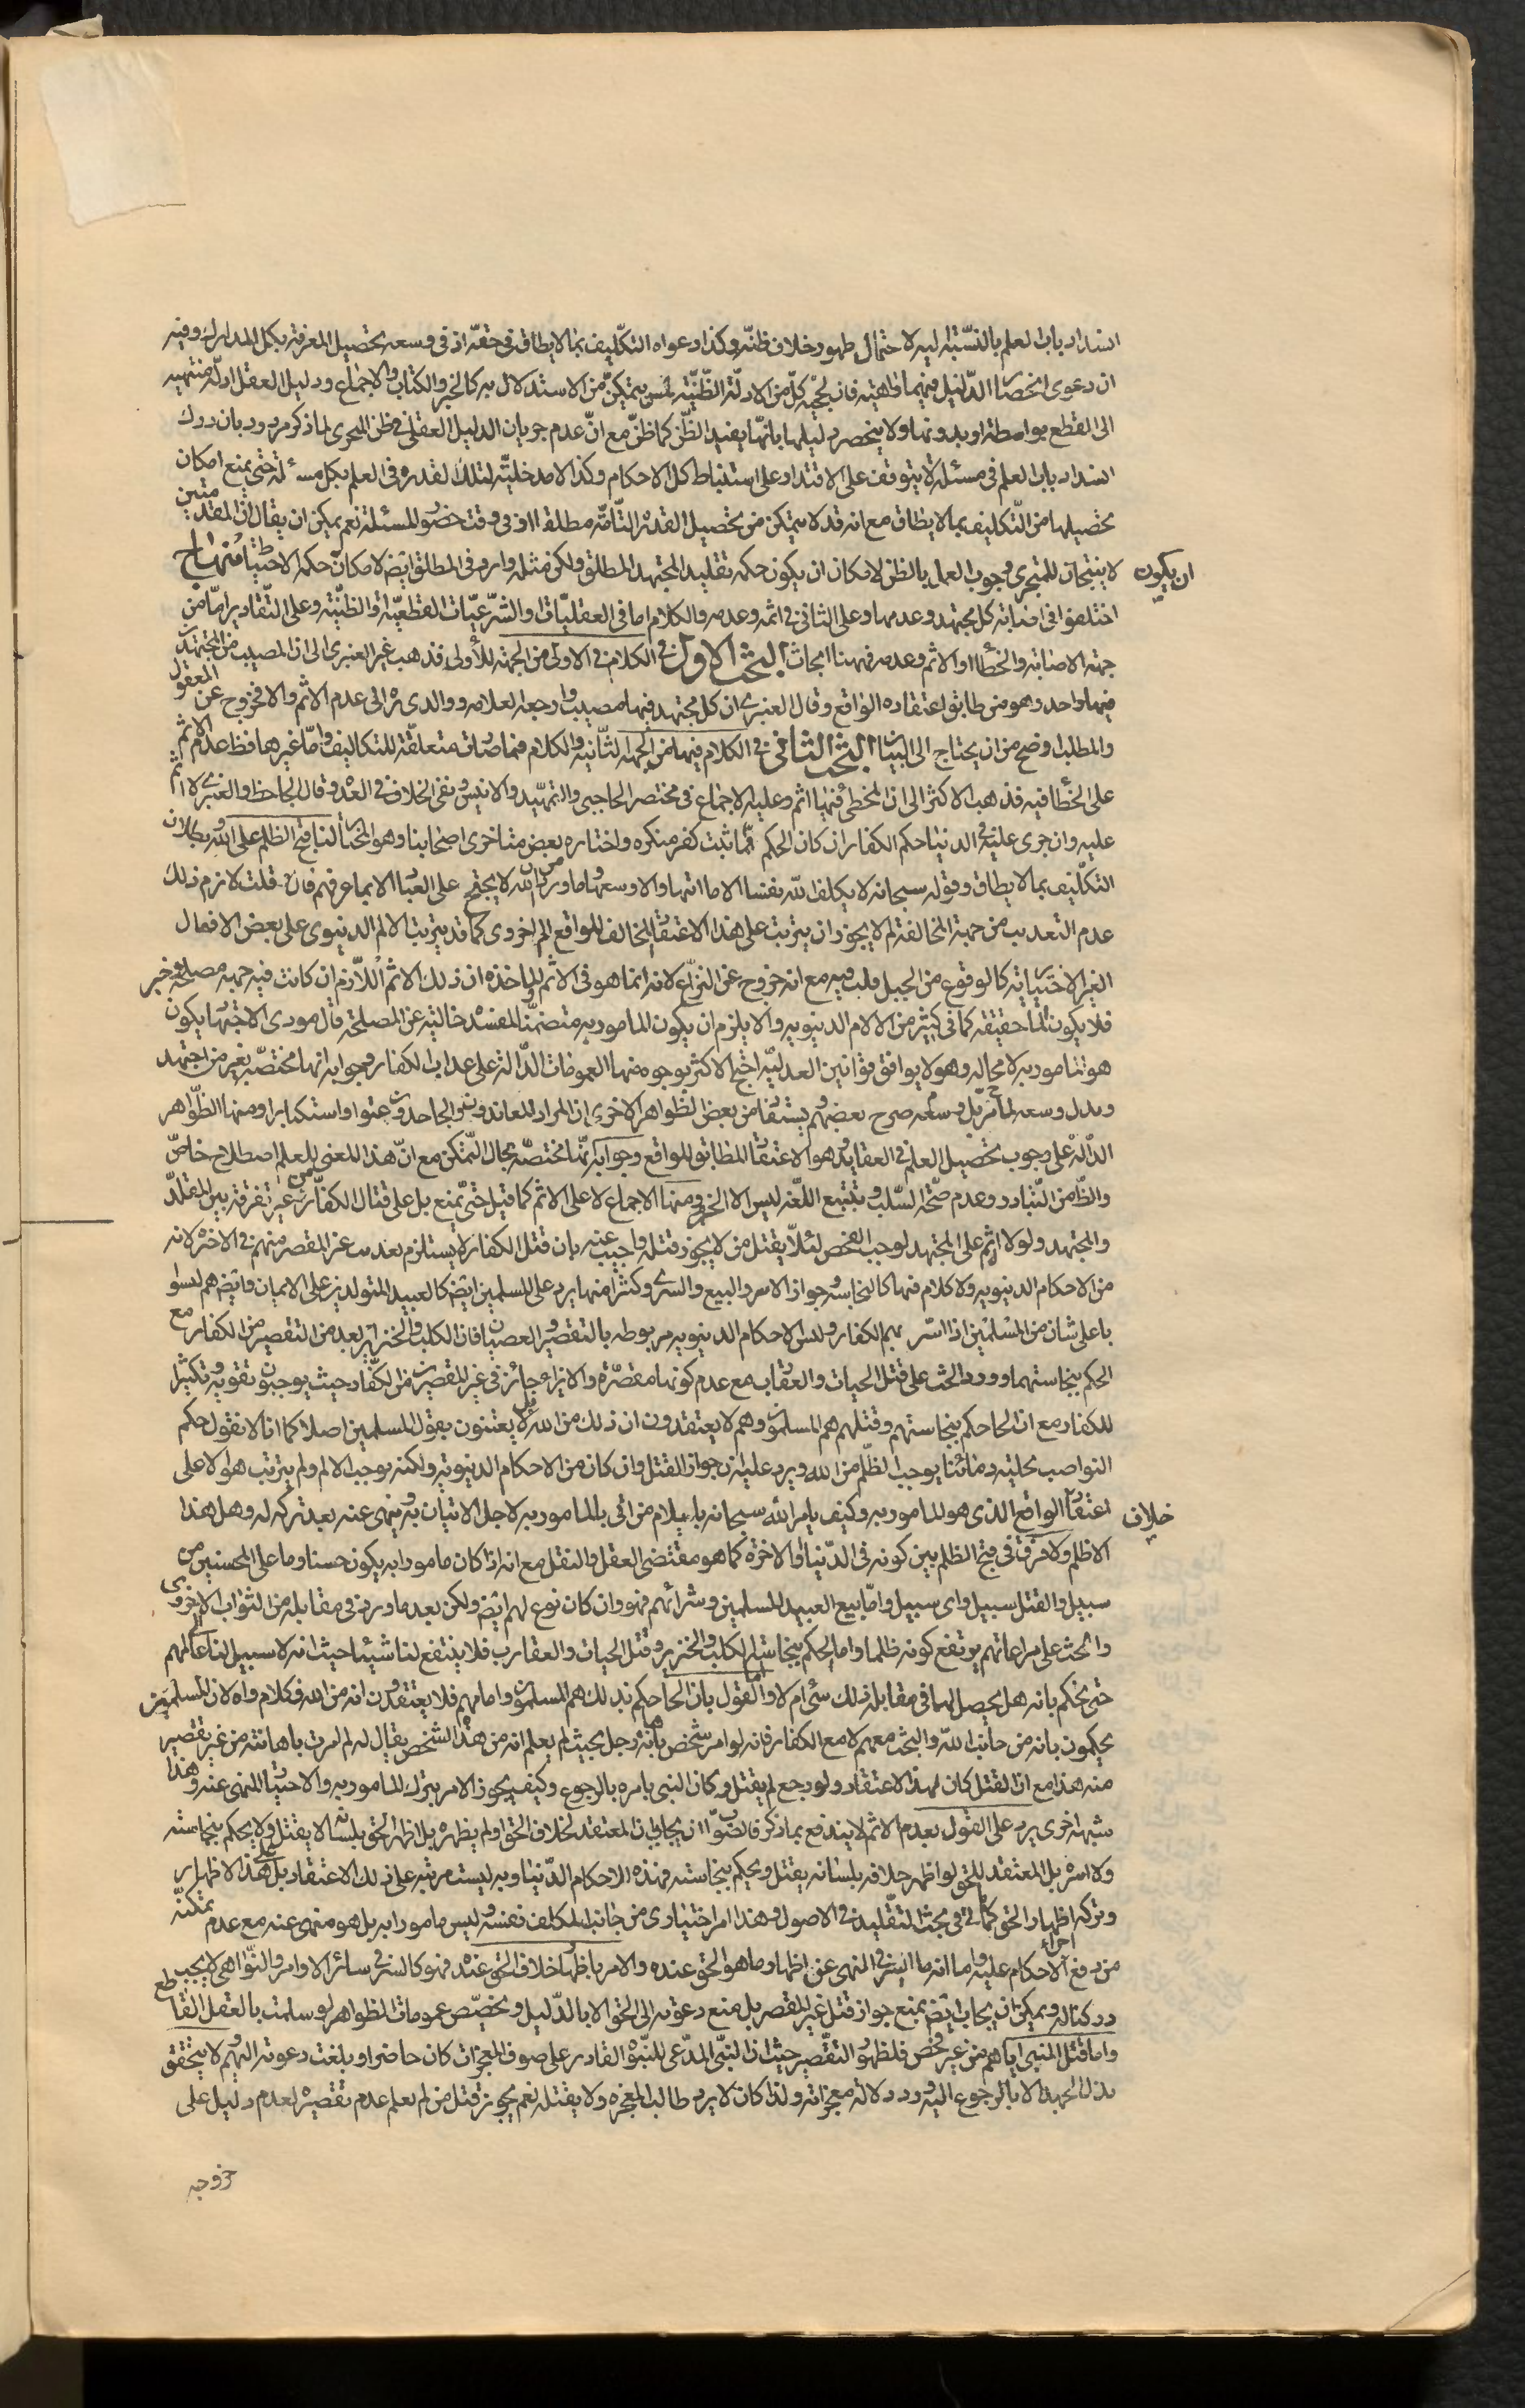 انسداد باب العلم بالنسبة اليه لاحتمال ظهور خلاف ظنه وكذا دعواه التكليف بما لا يطاق في حقه اذ في وسعه تحصيل المعرفة بكل المدارك وفيه
ان دعوى انحصار الدليل فيهما واهية فان لحجية كل من الادلة الظنية لمن يتمكن من الاستدلال به كالخبر والكتاب والاجماع ودليل العقل ادلة منتهية
الى القطع بواسطة او بدونها ولا ينحصر دليلها بانها يفيد الظن كما ظن مع ان عدم جريان الدليل العقلي في ظن المتجزى لما ذكر مردود بان درك
انسداد باب العلم في مسئلة لا يتوقف على الاقتدار على استنباط كل الاحكام وكذا لا مدخلية لتلك القدرة في العلم بكل مسئلة حتى يمنع امكان
تحصيلها من التكليف بما لا يطاق مع انه قد لا يتمكن من تحصيل القدرة التامة مطلقا او في وقت حضور المسئلة نعم يمكن ان يقال ان المقدمتين
لا ينتجان للمتجزى وجوب العمل بالظن لامكان ان يكون حكمه تقليد المجتهد المطلق ولكن مثله وارد في المطلق ايضا لامكان حكمه الاحتياط منهاج
ان يكون
اختلفوا في اصابة كل مجتهد وعدمها وعلى الثاني في اثمه وعدمه والكلام اما في العقليات او الشرعيات القطعية او الظنية وعلى التقادير اما من
جهة الاصابة والخطأ او الاثم وعدمه فههنا ابحاث البحث الاول في الكلام في الاولى من الجهة الاولى فذهب غير العنبري الى ان المصيب من المجتهدين
فيها واحد وهو من طابق اعتقاده الواقع وقال العنبري ان كل مجتهد فيها مصيب وارجعه العلامة ووالدى ره الى عدم الاثم والا فخروج عن المعقول
والمطلب اوضح من ان يحتاج الى البيان البحث الثاني في الكلام فيها من الجهة الثانية والكلام فيما صارت متعلقة للتكاليف واما غيرهما فظ عدم الاثم
على الخطأ فيه فذهب الاكثر الى ان المخطى فيها اثم وعليه الاجماع في مختصر الحاجبي والتمهيد والانيس ونفى الخلاف في العدة وقال الجاحظ والعنبري لا اثم
عليه وان جرى عليه في الدنيا حكم الكفار ان كان الحكم مما ثبت كفر منكره واختاره بعض متاخرى اصحابنا وهو المختار لنا قبح الظلم على الله وبطلان
التكليف بما لا يطاق وقوله سبحانه لا يكلف الله نفسا الا ما اتيها والا وسعها وما ورد من ان الله لا يحتج على العباد الا بما عرفهم فان قلت لازم ذلك
عدم التعذيب من جهة المخالفة لم لا يجوز ان يترتب على هذا الاعتقاد المخالف للواقع الم اخروى كما قد يترتب الالم الدنيوى على بعض الافعال
الغير الاختيارية كالوقوع من الجبل قلت فيه مع انه خروج عن النزاع لانه انما هو في الاثم والمؤاخذة ان ذلك الاثم اللازم ان كانت فيه جهة مصلحة خير
فلا يكون الما حقيقة كما في كثير من الالام الدنيوية والا يلزم ان يكون المامور به متضمنا للمفسدة خالية عن المصلحة فان مودى الاجتهاد يكون
هو المامور به لا محالة وهو لا يوافق قوانين العدلية احتج الاكثر بوجوه منها العمومات الدالة على عذاب الكفار وجوابه انها مختصة بغير من اجتهد
وبذل وسعه لما مر بل صرح بعضهم يستفاد من بعض الظواهر الاخرى ان المراد المعاندون والجاحدون عتوا واستكبارا ومنها الظواهر
الدالة على وجوب تحصيل العلم في العقايد وهو الاعتقاد المطابق للواقع وجوابه انها مختصة بحال التمكن مع ان هذا المعنى للعلم اصطلاح خاص
والظ من التبادر وعدم صحة السلب وتتبع اللغة ليس الا الجزم ومنها الاجماع لا على الاثم كما قيل حتى يمنع بل على قتال الكفار من غير تفرقة بين المقلد
والمجتهد ولولا اثم على المجتهد لوجب الفحص لئلا يقتل من لا يجوز قتله واجيب عنه بان قتل الكفار لا يستلزم تعذيب غير المقصر منهم في الاخرة لانه
من الاحكام الدنيوية ولا كلام فيها كالنجاسة وجواز الاسر والبيع والسرى وكثير منها يرد على المسلمين ايضا كالعبيد المتولدين على الايمان وايضا هم ليسوا
باعلى شان من المسلمين اذا اسر بهم الكفار وليس الاحكام الدنيوية مربوطة بالتقصير والعصيان فان الكلب والخنزير ابعد من التقصير من الكفار مع
الحكم بنجاستهما وورود الحث على قتل الحيات والعقارب مع عدم كونها مقصرة والايزاء جائز في غير المقصرين من الكفار حيث يوجبون تقوية وتكثيرا
للكفار مع ان الحاكم بنجاستهم وقتلهم هم المسلمون وهم لا يعتقدون ان ذلك من الله بل لا يعتنون بقول المسلمين اصلا كما انا لا نقول حكم
النواصب بحلية دمائنا يوجب الظلم من الله ويرد عليه ان جواز القتل وان كان من الاحكام الدنيوية ولكنه يوجب الالم ولم يترتب هو الا على
اعتقاد الواقع الذى هو المامور به وكيف يامر الله سبحانه بايلام من اتى بالمامور به لاجل الاتيان به وينهى عنه بعد تركه له وهل هذا
خلاف
الا ظلم ولا فرق في قبح الظلم بين كونه في الدنيا والاخرة كما هو مقتضى العقل والنقل مع انه اذا كان مامورا به يكون حسنا وما على المحسنين من
سبيل والقتل سبيل واى سبيل واما بيع العبيد المسلمين وشرائهم فهو وان كان نوع لهم ايضا ولكن بعد ما ورد في مقابله من الثواب الاخروى
والحث على مراعاتهم يرتفع كونه ظلما واما الحكم بنجاسة الكلب والخنزير وقتل الحيات والعقارب فلا ينتفع لنا شيئا حيث انه لا سبيل لنا الى عالمهم
حتى نحكم بانه هل يحصل لهما في مقابله ذلك شى ام لا واما القول بان الحاكم بذلك هم المسلمون وامامهم فلا يعتقدون انه من الله فكلام واه لان المسلمين
يحكمون بانه من جانب الله والبحث معهم لا مع الكفار فانه لو امر شخص باهانة رجل بحيث لم يعلم انه من هذا الشخص يقال له لم امرت باهانته من غير تقصير
منه هذا مع ان القتل كان لهذا الاعتقاد ولو رجع لم يقتل وكان النبي يامره بالرجوع وكيف يجوز الامر بترك المامور به والاتيان المنهى عنه وهذا
شبهة اخرى يرد على القول بعدم الاثم لا يندفع بما ذكر فالصواب ان يجاب بان المعتقد لخلاف الحق لو لم يظهره بل اظهر الحق بلسانه لا يقتل ولا يحكم بنجاسته
ولا اسره بل المعتقد للحق لو اظهر خلافه بلسانه يقتل ويحكم بنجاسته فهذه الاحكام الدنياوية ليست مرتبة على ذلك الاعتقاد بل على هذا الاظهار
وترك اظهار الحق كما في بحث التقليد في الاصول وهذا امر اختيارى من جانب المكلف نفسه وليس مامورا به بل هو منهى عنه مع عدم تمكنه
من دفع اجراء الاحكام عليه واما انه ما السر في النهى عن اظهار ما هو الحق عنده والامر باظهار خلاف الحق عنده فهو كالسر في سائر الاوامر والنواهى لا يجب
درك‍نا له ويمكن ان يجاب ايضا بمنع جواز قتل غير المقصر بل منع دعوته الى الحق الا بالدليل وتخصيص عمومات الظواهر لو سلمت بالعقل القاطع
واما قتل النبي اياهم من غير فحص فلظهور التقصير حيث ان النبي المدعى للنبوة القادر على صنوف المعجزات كان حاضرا وبلغت دعوته اليهم لا يتحقق
بذل الجهد الا بالرجوع اليه ودرك دلالة معجزاته ولذا كان لا يرد طالب المعجزة ولا يقتله نعم يجوز قتل من لم يعلم عدم تقصيره لعدم دليل على
خروجه